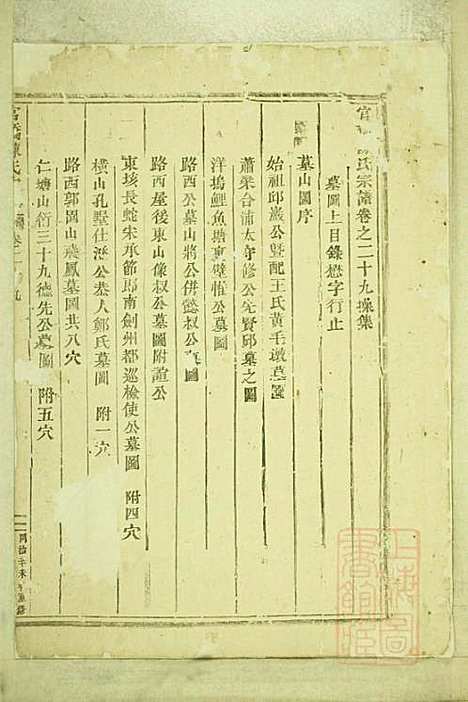 官 氏宗譜卷之二十九操集
墓圖上目錄懋字行止
墓山圖序
始祖邱巖公暨配王氏黃毛墩墓圖
蕭梁合浦太守修公先賢邱墓之圖
洋塢鯉魚塘東壁惟公墓圖
路西公墓山將公併懿叔公墓圖
路西屋後東山像叔公墓圖附誼公
東垓長蛇宋承節郎南劍州都巡檢使公墓圖 附四穴
橫山孔墅仕 公恭人鄭氏墓圖 附一穴
路西郭岡山飛鳳墓圖共八穴
仁塘山衍三十九德先公墓圖 附五穴
官 陳氏 卷二 九
同治辛未
上海圖書館藏